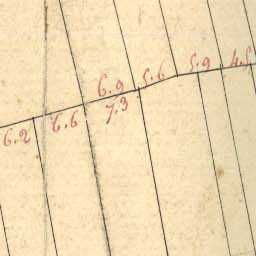 6.9 5.6 5.9 4.5
6.2 6.6 7.3